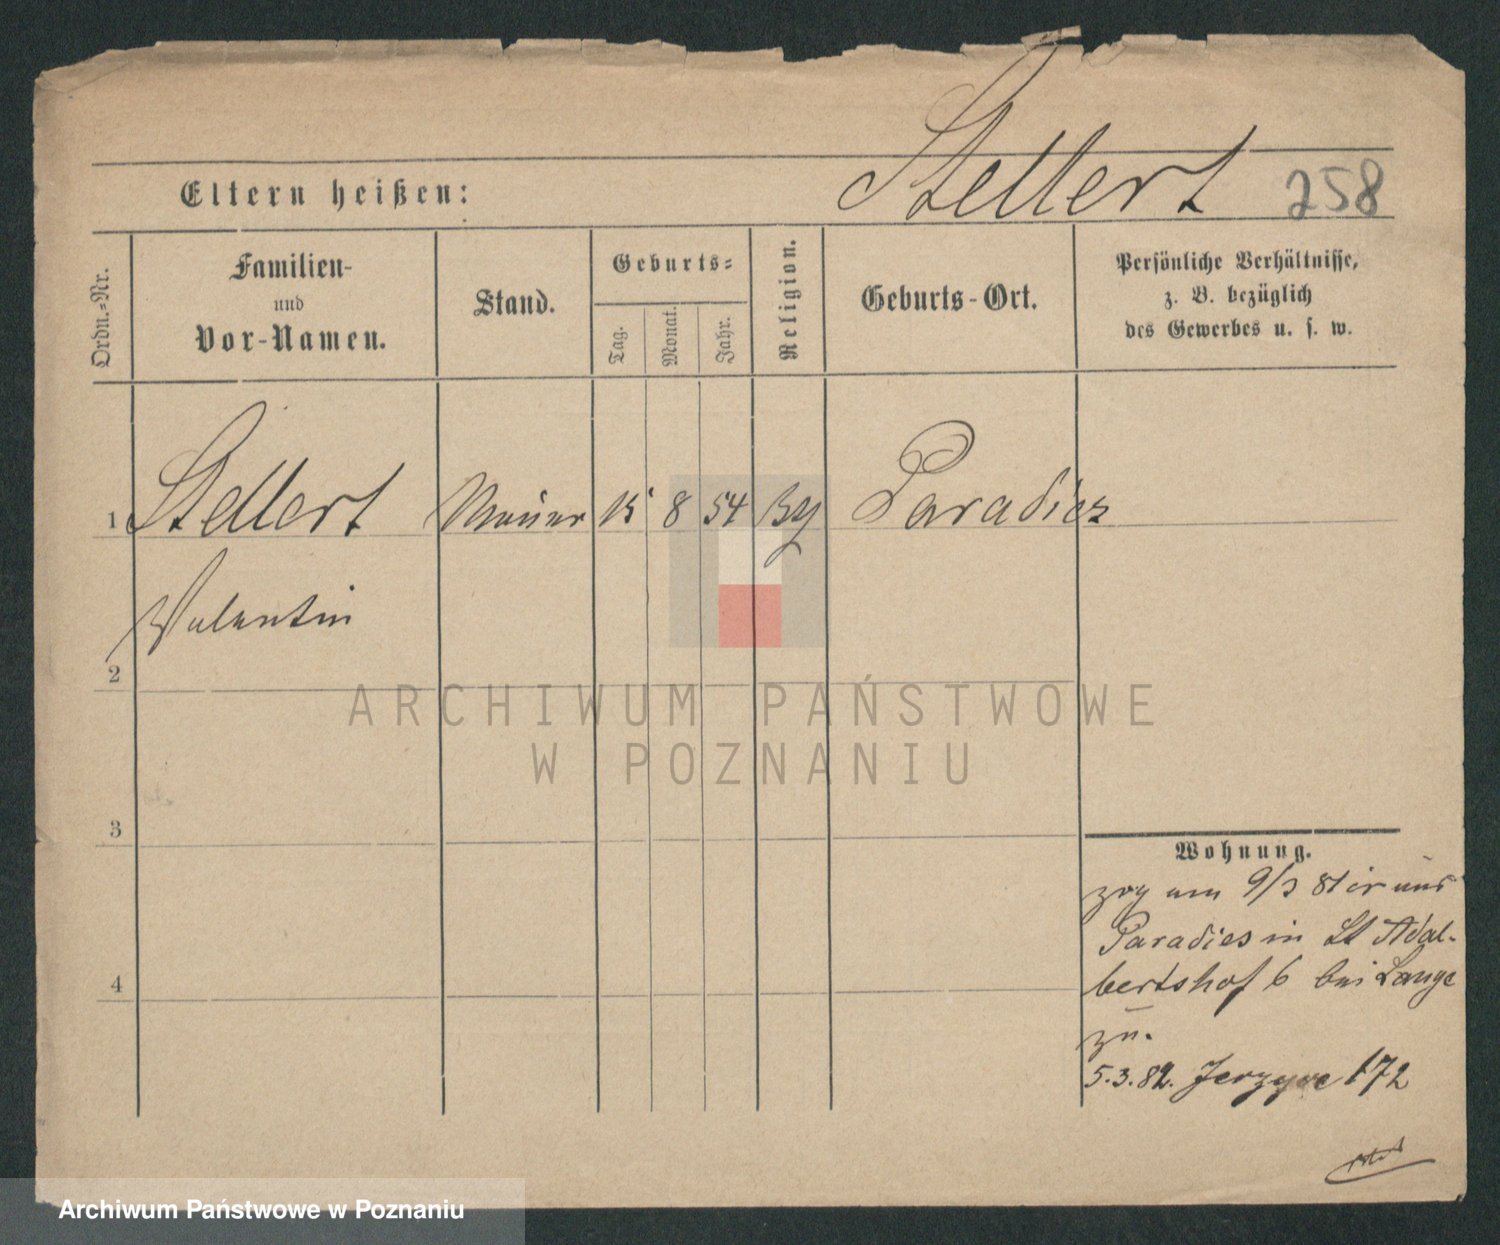 Stellert 258
Eltern heißen:
Ordn.-Nr.
Familien-
und
Vor-Namen.
Stand.
Geburts-
Tag.
Monat.
Jahr.
Religion.
Geburts-Ort.
Persönliche Verhältnisse,
z. B. bezüglich
des Gewerbes u. s. w.
1 Stellert Maurer 15 8 54 Paradies
Valentin
2
3
4
Wohnung.
zog am 9/3 81 aus
Paradies in St Adal-
bertshof 6 bei Lange
zu.
5.3.82. Jerzyce 172
ARCHIWUM PAŃSTWOWE
W POZNANIU
Archiwum Państwowe w Poznaniu